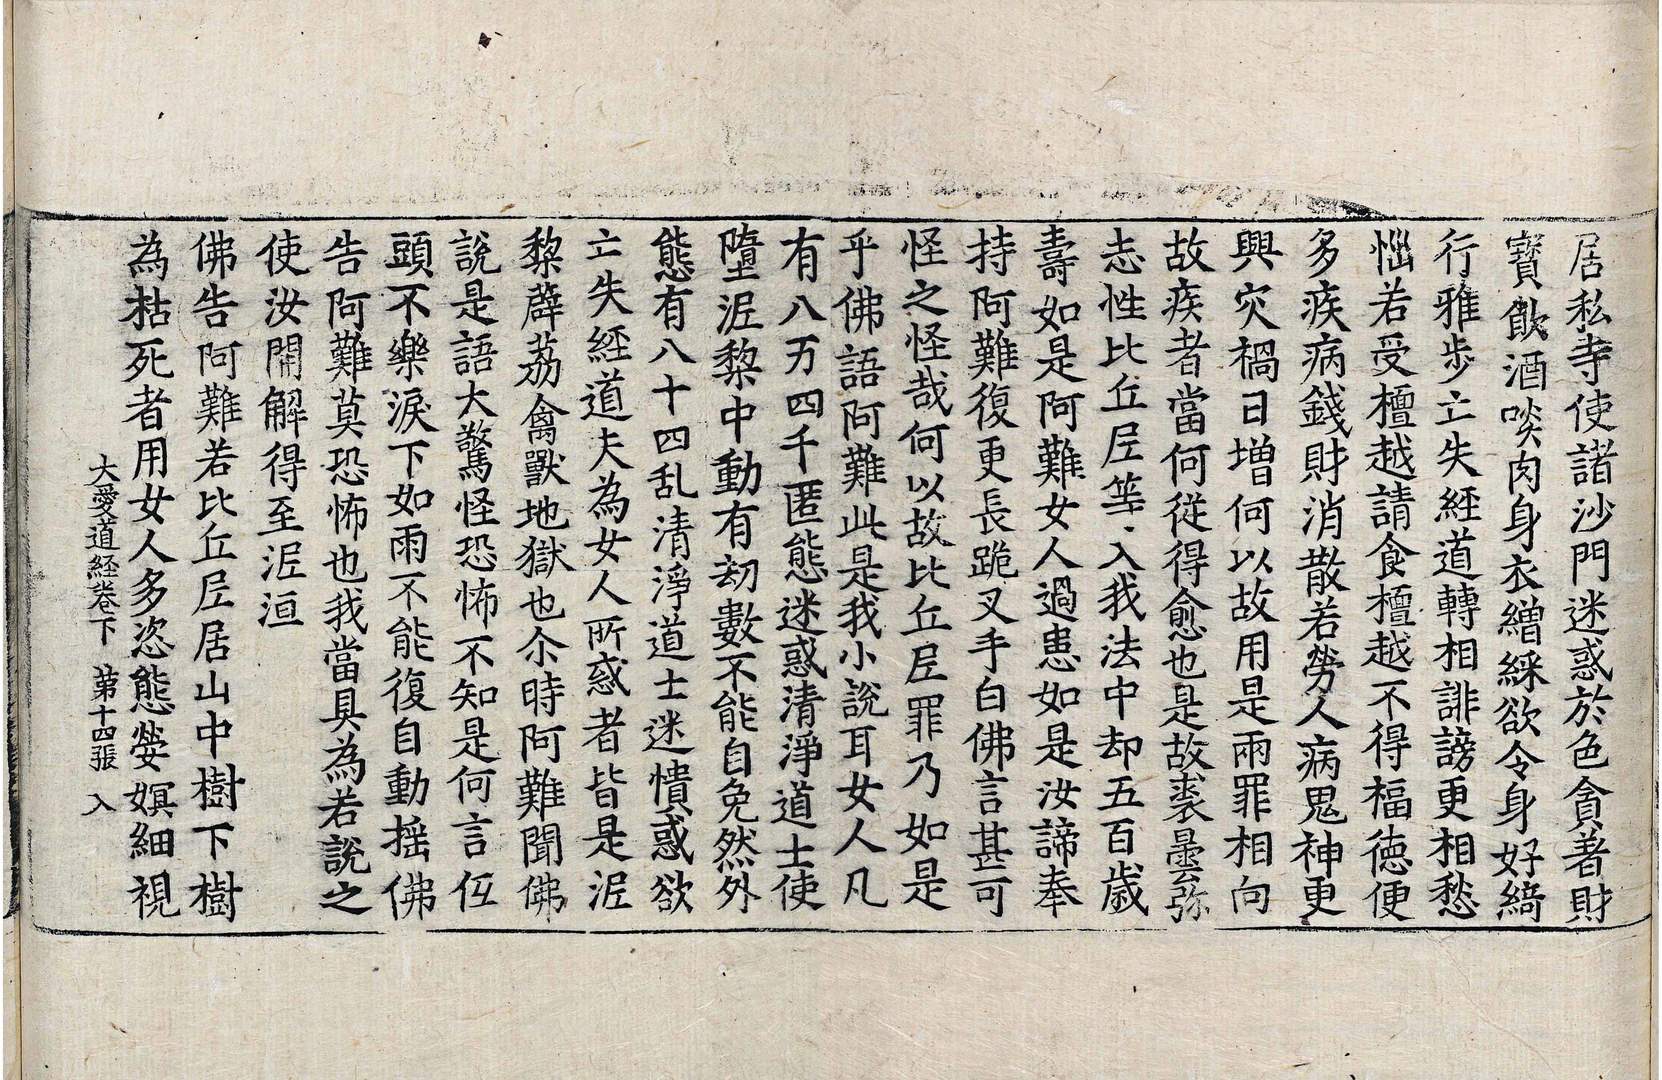 居私寺使諸沙門迷惑於色貪著財
寶飮酒啖肉身衣繒綵欲令身好綺
行雅步亡失經道轉相誹謗更相愁
惱若受檀越請食檀越不得福德便
多疾病錢財消散若勞人病鬼神更
興灾禍日增何以故用是兩罪相向
故疾者當何從得愈也是故裘曇弥
志性比丘尼等、入我法中却五百歲
壽如是阿難女人過患如是汝諦奉
持阿難復更長跪叉手白佛言甚可
怪之怪哉何以故比丘尼罪乃如是
乎佛語阿難此是我小說耳女人凡
有八万四千匿態迷惑清淨道士使
墮泥黎中動有劫數不能自免然外
態有八十四乱清淨道士迷憒惑欲
亡失經道夫為女人所惑者皆是泥
黎薜荔禽獸地獄也尒時阿難聞佛
說是語大驚怪恐怖不知是何言仾
頭不樂淚下如雨不能復自動搖佛
告阿難莫恐怖也我當具為若說之
使汝開解得至泥洹
佛告阿難若比丘尼居山中樹下樹
為枯死者用女人多恣態嫈嫇細視
大愛道經卷下 第十四張 入